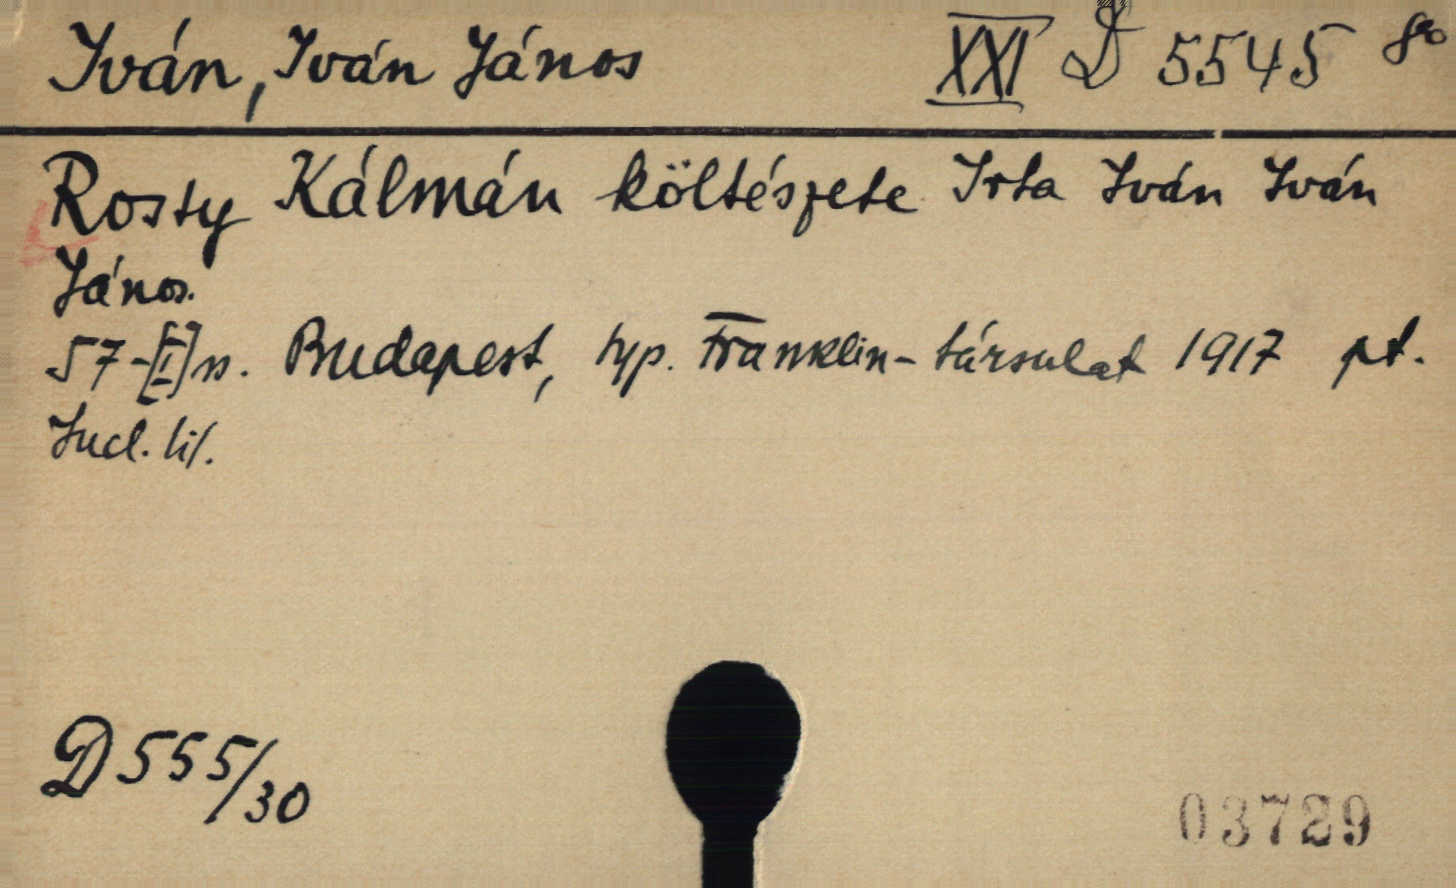 Iván, Iván János XXI D 5545 8º
Rosty Kálmán költészete Irta Iván Iván
János.
57-[I] s. Budapest, typ. Franklin-társulat 1917 pt.
Incl. lit.
D 555/30
03729